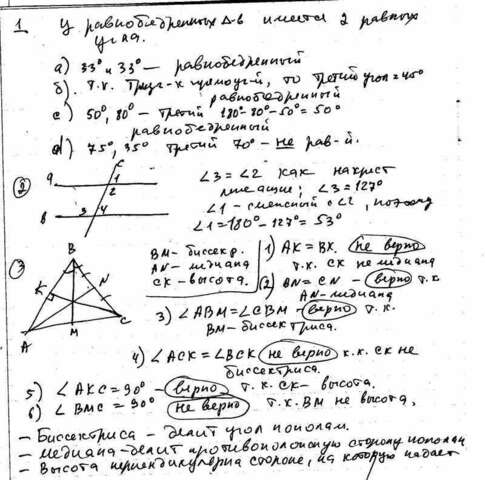 1 У равнобедренных Δ-в имеется 2 равных
угла.
а) 33° и 33° — равнобедренный
б) т.к. треуг-к прямоуг-й, то третий угол = 45°
равнобедренный
с) 50°, 80° — третий 180°-80°-50° = 50°
равнобедренный
d) 75°, 35° третий 70° — не рав-й.
2
a
b
c
1
2
3 4
∠3 = ∠2 как накрест
лежащие; ∠3 = 127°
∠1 - смежный с ∠2, поэтому
∠1 = 180° - 127° = 53°
3
B
K
N
A
M
C
BM - биссектр.
AN - медиана
CK - высота.
1) AK = BK. не верно
т.к. CK не медиана
2) BN = CN - верно т.к
AN - медиана
3) ∠ABM = ∠CBM - верно т.к.
BM - биссектриса.
4) ∠ACK = ∠BCK не верно т.к. CK не
биссектриса.
5) ∠AKC = 90° - верно т.к. CK - высота.
6) ∠BMC = 90° не верно т.к. BM не высота,
- Биссектриса - делит угол пополам.
- медиана - делит противоположную сторону пополам
- Высота перпендикулярна стороне, на которую падает